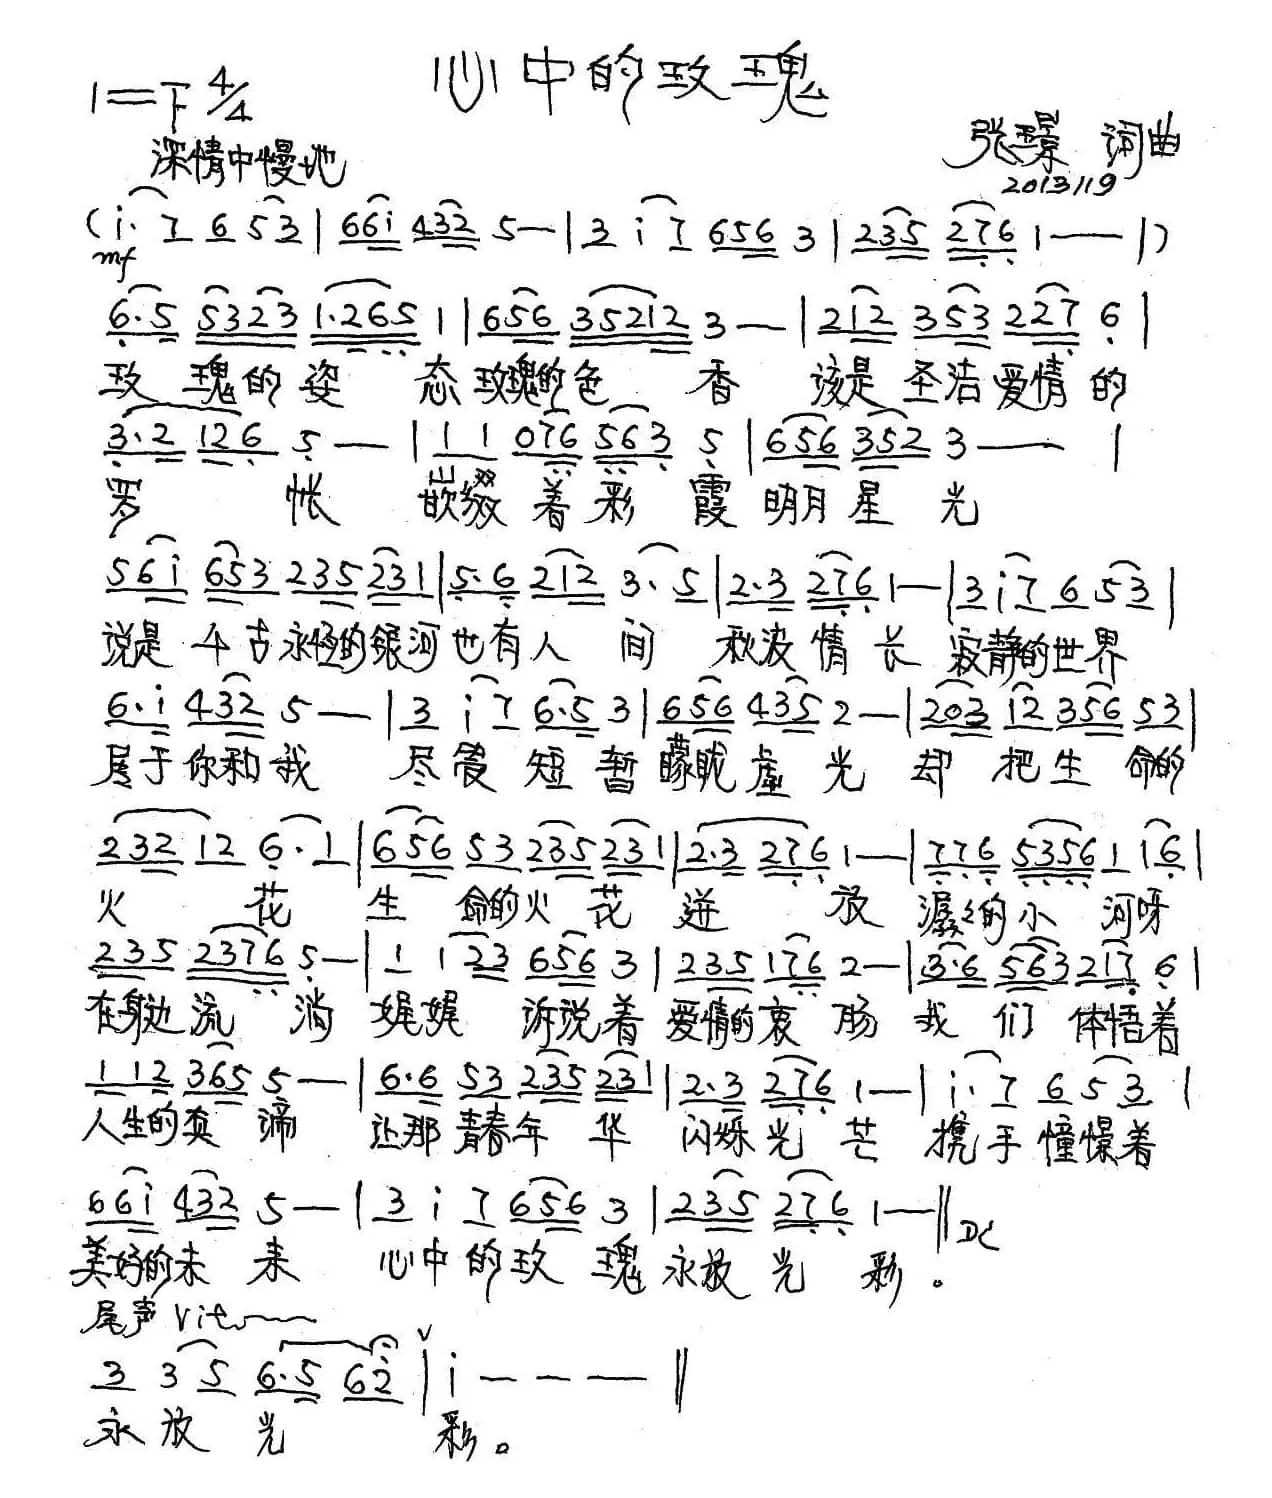 心中的玫瑰
1=下 4/4
深情中慢地
张璟 词曲
2013119
(i· 7 6 5 3 | 6 6 i 4 3 2 5 — | 3 i 7 6 5 6 3 | 2 3 5 2 7 6 1 — — | )
mf
6·5 5323 1·265 1 | 656 35212 3 — | 212 353 227 6 |
玫 瑰的姿 态 玫瑰的色 香 该是圣洁爱情的
3·2 126 5 — | 1 1 076 563 5 | 656 352 3 — |
罗 帐 嵌缀着彩霞明月星光
56i 653 235 231 | 5·6 212 3·5 | 2·3 276 1 — | 3 i 7 6 5 3 |
说是千古永恒的银河也有人间 秋波情长 寂静的世界
6·i 432 5 — | 3 i 7 6·5 3 | 656 435 2 — | 203 12 356 53 |
属于你和我 尽管短暂朦胧虚光 却把生命的
232 12 6·1 | 656 53 235 231 | 2·3 276 1 — | 776 5356 1 16 |
火 花 生命的火花迸放 潺潺的小河呀
235 2376 5 — | 1 1 23 656 3 | 235 176 2 — | 3·6 563 217 6 |
在身边流淌 娓娓诉说着爱情的衷肠 我们体悟着
112 365 5 — | 6·6 53 235 231 | 2·3 276 1 — | i· 7 6 5 3 |
人生的真谛 让那青春年华闪烁光芒 携手憧憬着
66i 432 5 — | 3 i 7 656 3 | 235 276 1 — ‖ DC
美好的未来 心中的玫瑰永放光彩。
尾声 Vit
3 3 5 6·5 62 | i — — — ‖
永放光 彩。